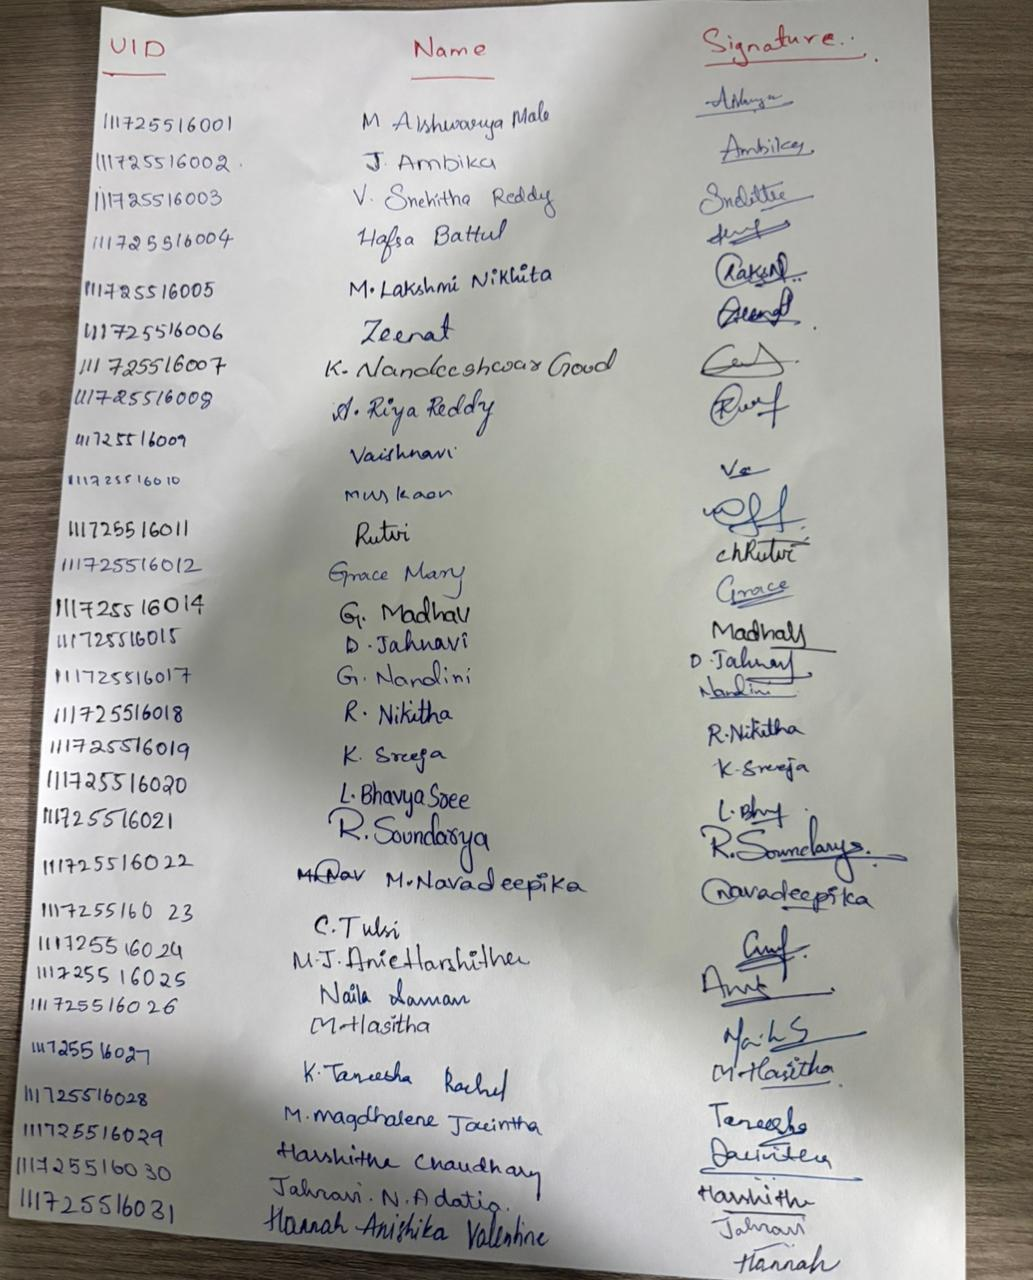 UID Name Signature
111725516001 M Aishwarya Male
111725516002 J. Ambika Ambika
111725516003 V. Snehitha Reddy
111725516004 Hafsa Battul
111725516005 M. Lakshmi Nikhita
111725516006 Zeenat
111725516007 K. Nandeeshwar Goud
111725516008 A. Riya Reddy
111725516009 Vaishnavi
111725516010 Muskaan
111725516011 Rutvi ChRutvi
111725516012 Grace Mary Grace
111725516014 G. Madhav Madhav
111725516015 D. Jahnavi D. Jahnavi
111725516017 G. Nandini Nandini
111725516018 R. Nikitha R. Nikitha
111725516019 K. Sreeja K. Sreeja
111725516020 L. Bhavya Sree
111725516021 R. Soundarya R. Soundarya
111725516022 M. Navadeepika Navadeepika
111725516023 C. Tulsi
111725516024 M.J. Anie Harshitha
111725516025 Naila Saman
111725516026 M. Hasitha M. Hasitha
111725516027 K. Taneesha Rachel Taneesha
111725516028 M. Magdhalene Jacintha
111725516029 Harshitha Chaudhary Harshitha
111725516030 Jahnavi. N. Adatia Jahnavi
111725516031 Hannah Anishika Valentine Hannah